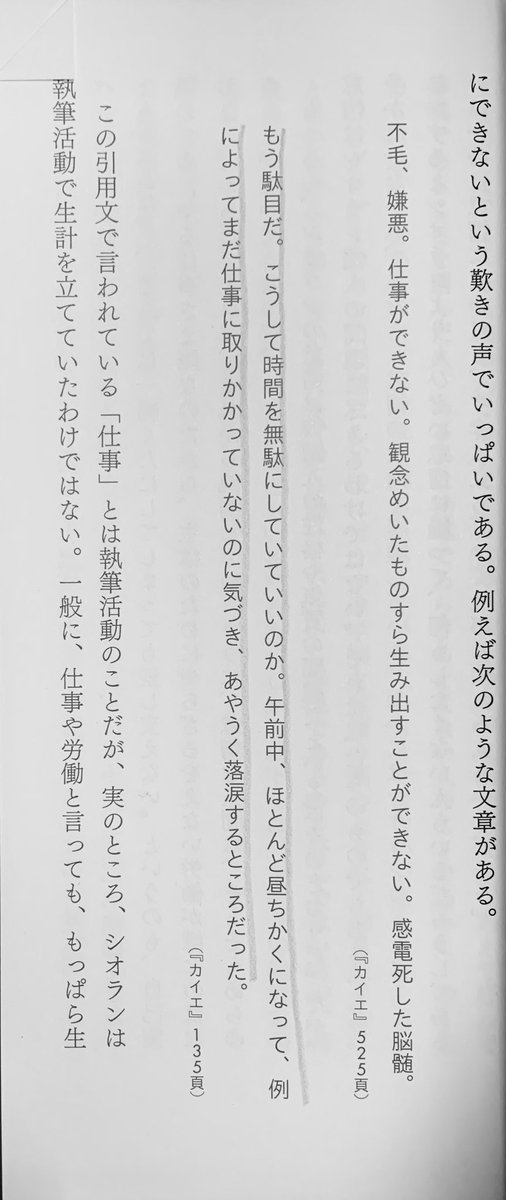 にできないという歎きの声でいっぱいである。例えば次のような文章がある。
不毛、嫌悪。仕事ができない。観念めいたものすら生み出すことができない。感電死した脳髄。
（『カイエ』525頁）
もう駄目だ。こうして時間を無駄にしていていいのか。午前中、ほとんど昼ちかくになって、例
によってまだ仕事に取りかかっていないのに気づき、あやうく落涙するところだった。
（『カイエ』135頁）
この引用文で言われている「仕事」とは執筆活動のことだが、実のところ、シオランは
執筆活動で生計を立てていたわけではない。一般に、仕事や労働と言っても、もっぱら生